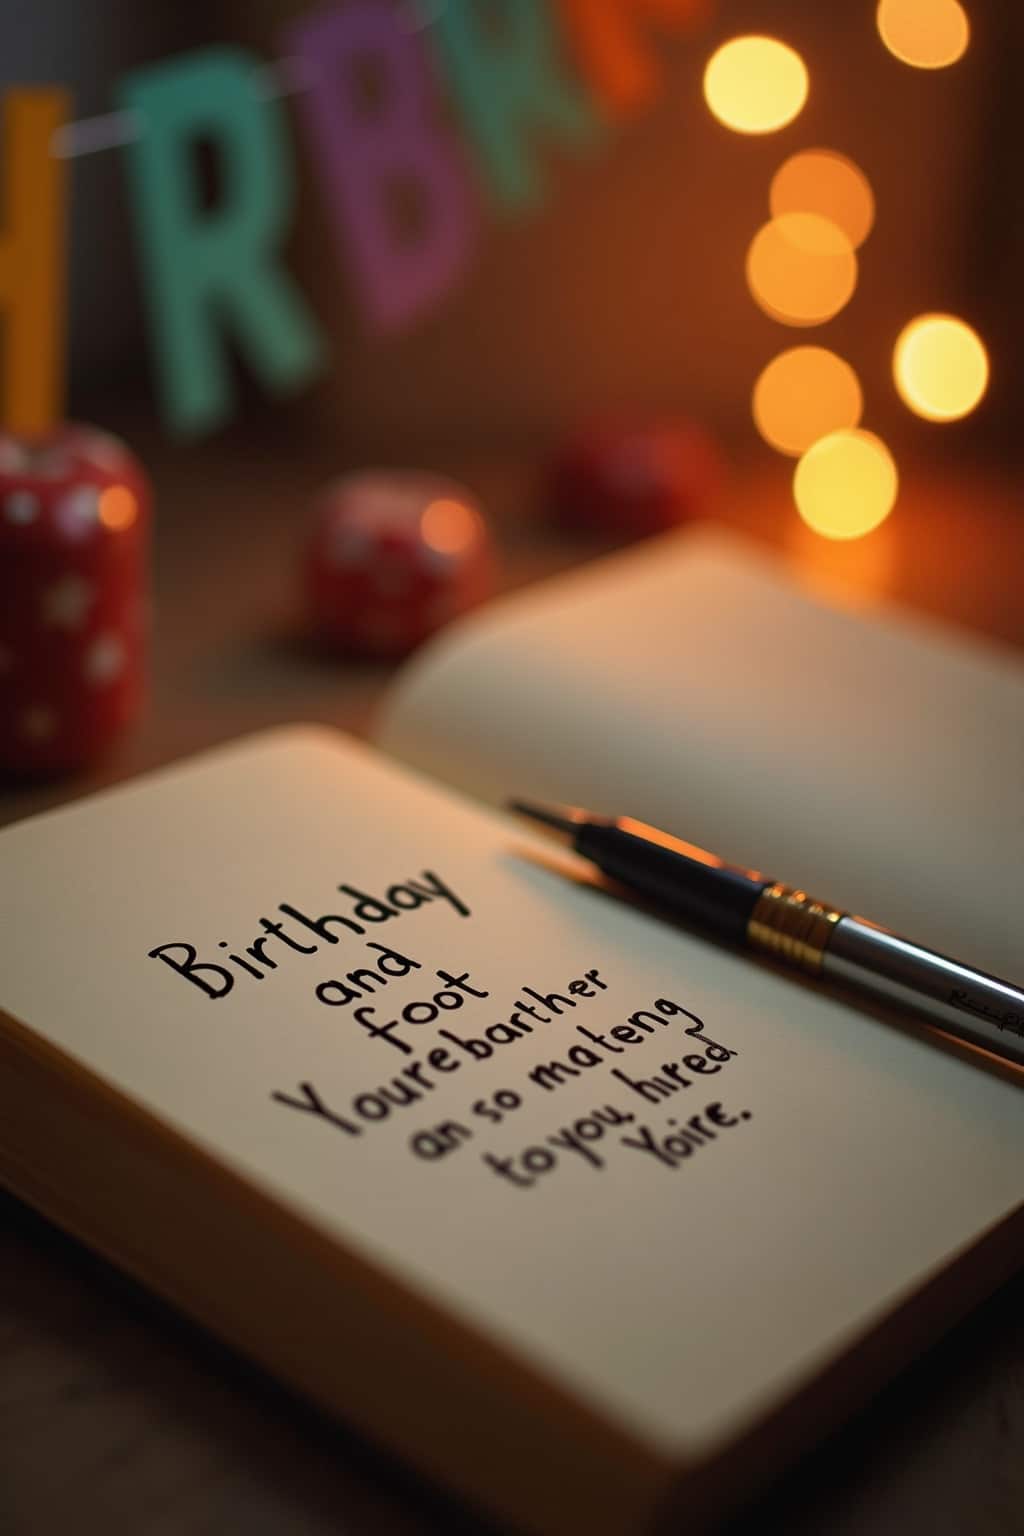 H R B
Birthday
and
foot
Yourebarther
an so mateng
to you, hired
Yoire.